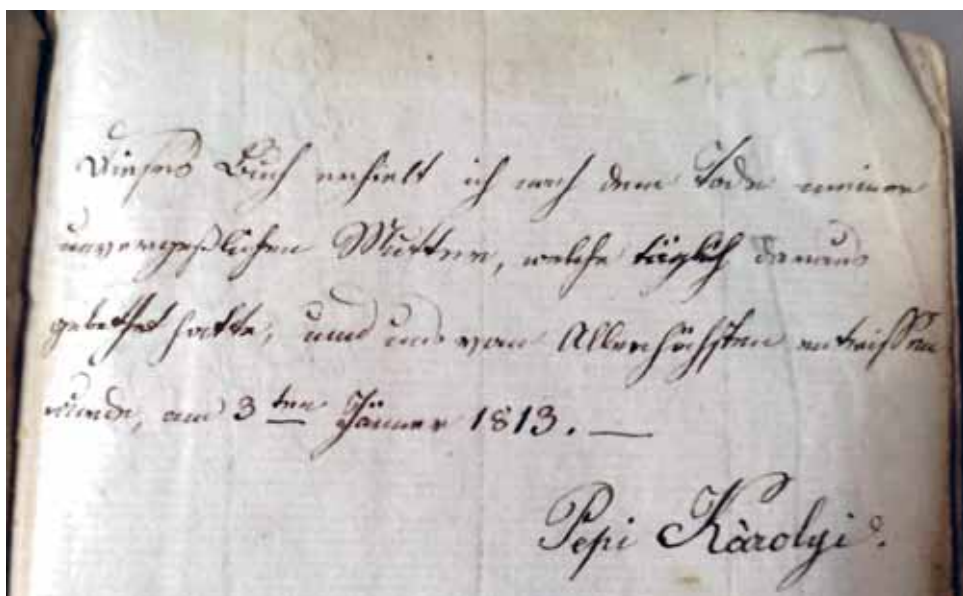 Dieses Buch erhielt ich nach dem Tode meiner
unvergeßlichen Mutter, welche täglich daraus
gebethet hatte, und uns vom Allerhöchsten entrissen
wurde, am 3ten Jänner 1813. —
Pepi Károlyi.